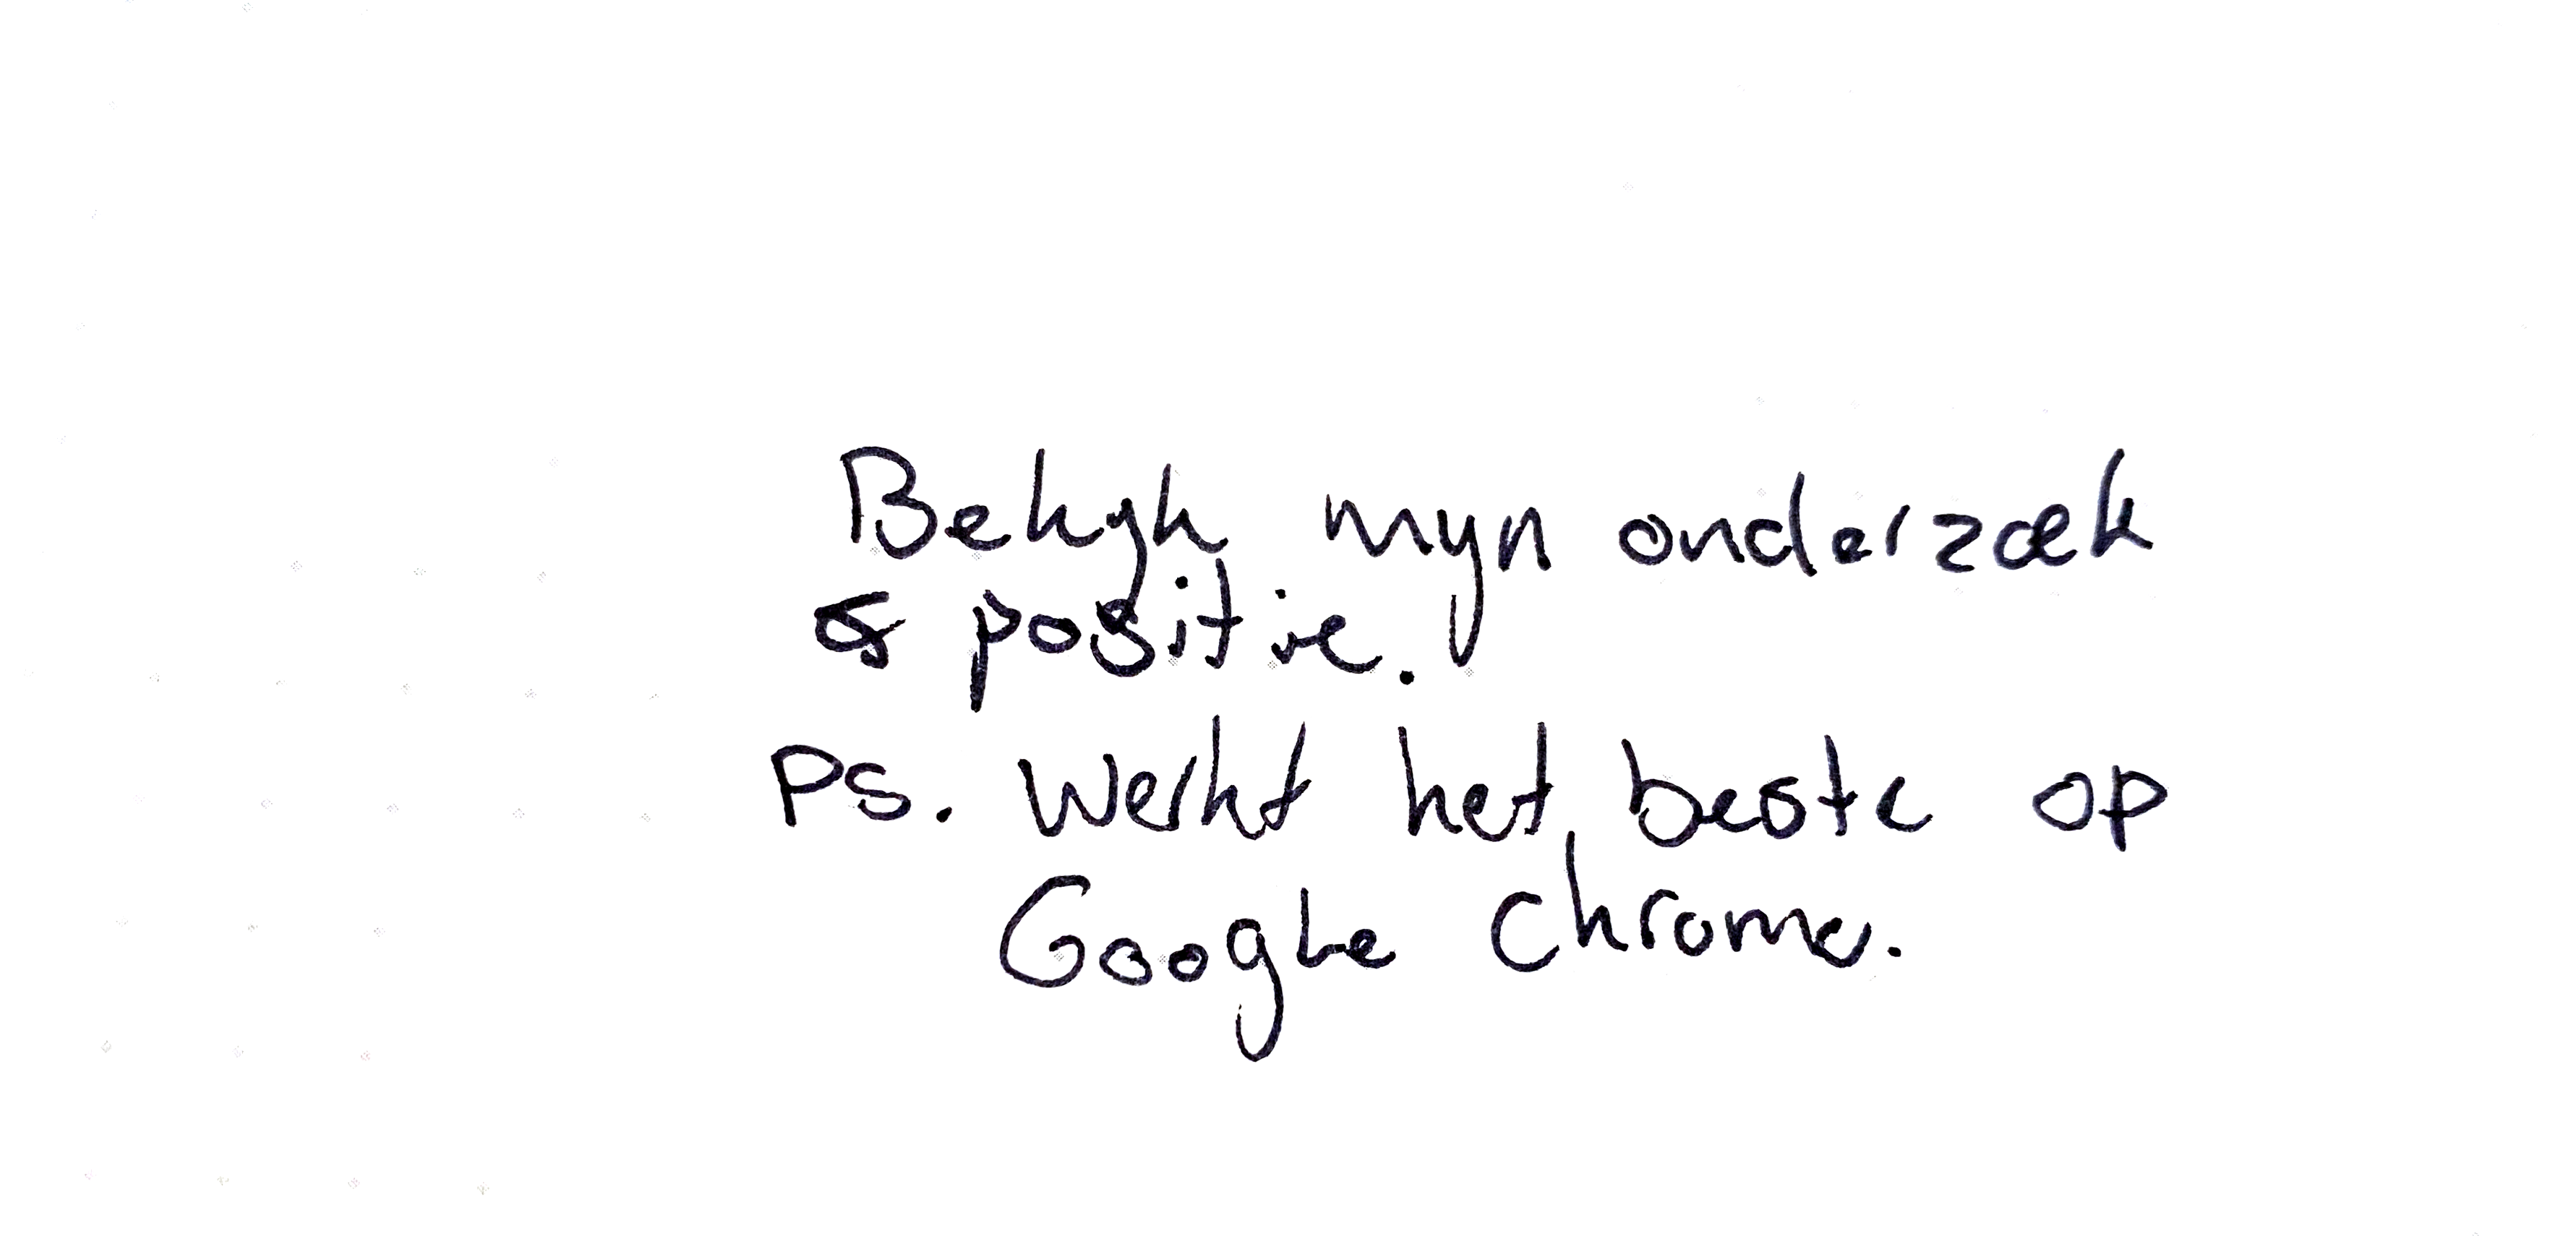 Bekyk myn onderzoek
& positie.
PS. Werkt het beste op
Google Chrome.